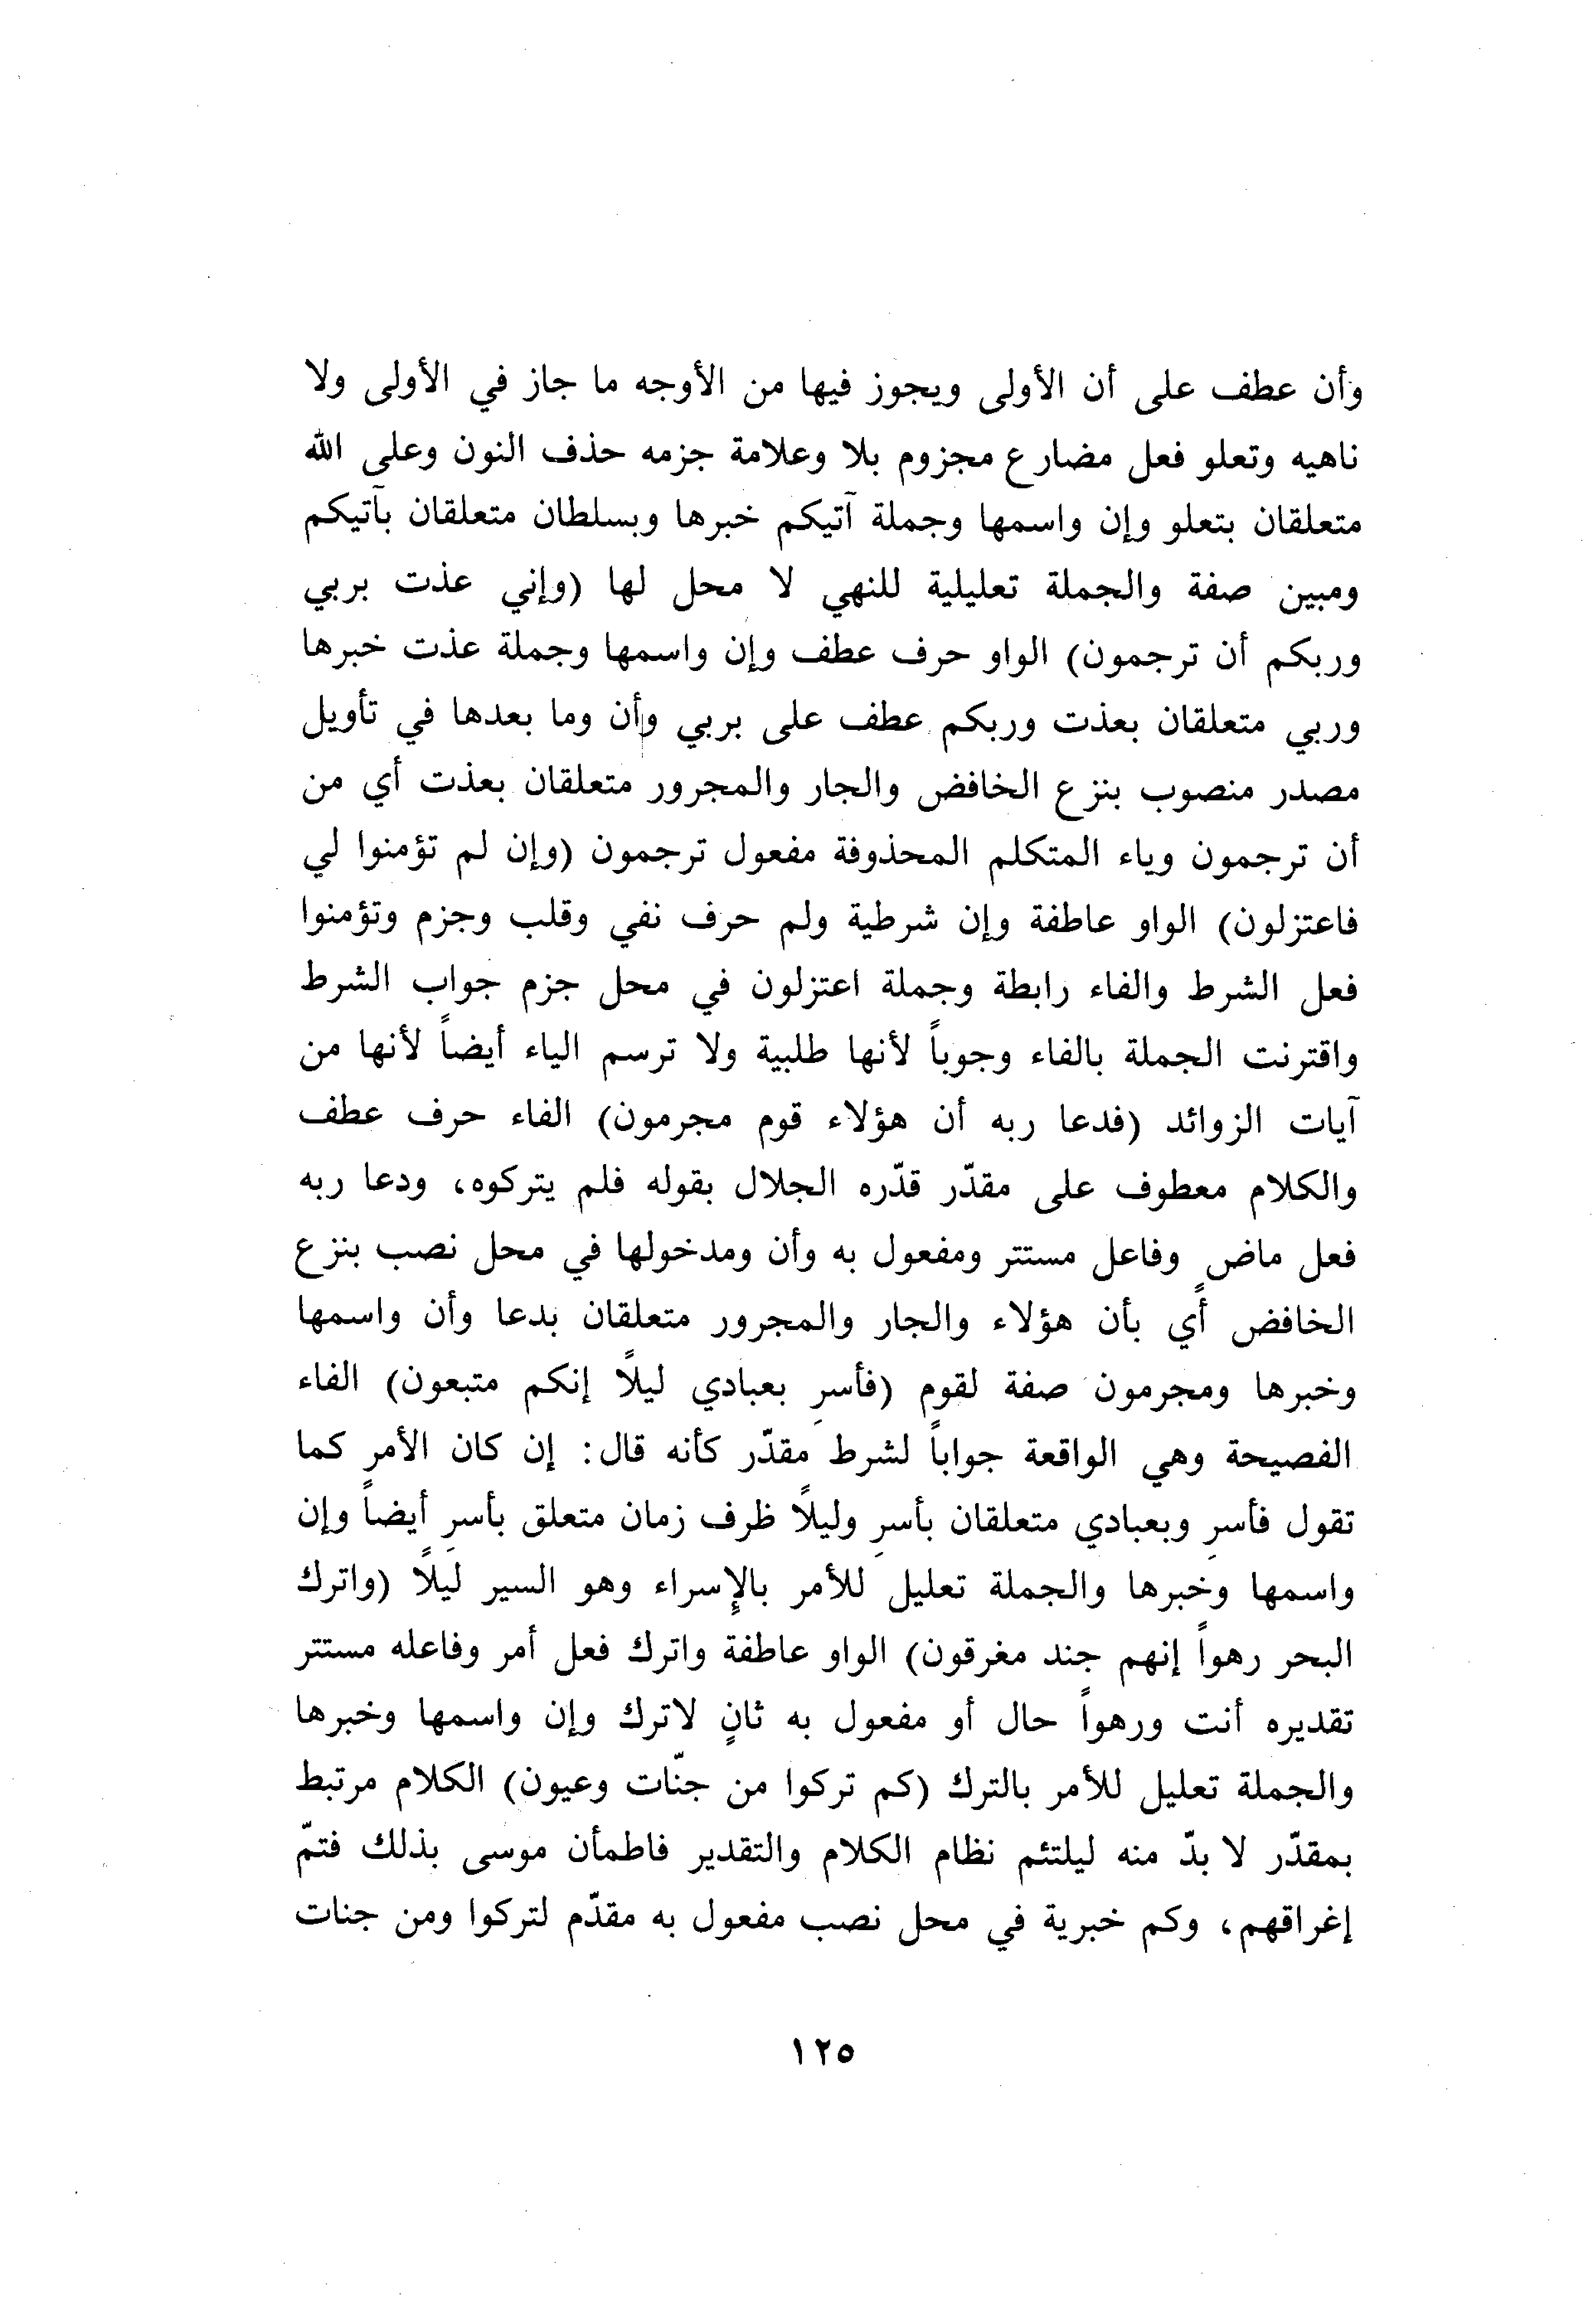 وأن عطف على أن الأولى ويجوز فيها من الأوجه ما جاز في الأولى ولا
ناهيه وتعلو فعل مضارع مجزوم بلا وعلامة جزمه حذف النون وعلى الله
متعلقان بتعلو وإن واسمها وجملة آتيكم خبرها وبسلطان متعلقان بآتيكم
ومبين صفة والجملة تعليلية للنهي لا محل لها (وإني عذت بربي
وربكم أن ترجمون) الواو حرف عطف وإن واسمها وجملة عذت خبرها
وربي متعلقان بعذت وربكم عطف على بربي وأن وما بعدها في تأويل
مصدر منصوب بنزع الخافض والجار والمجرور متعلقان بعذت أي من
أن ترجمون وياء المتكلم المحذوفة مفعول ترجمون (وإن لم تؤمنوا لي
فاعتزلون) الواو عاطفة وإن شرطية ولم حرف نفي وقلب وجزم وتؤمنوا
فعل الشرط والفاء رابطة وجملة اعتزلون في محل جزم جواب الشرط
واقترنت الجملة بالفاء وجوباً لأنها طلبية ولا ترسم الياء أيضاً لأنها من
آيات الزوائد (فدعا ربه أن هؤلاء قوم مجرمون) الفاء حرف عطف
والكلام معطوف على مقدّر قدّره الجلال بقوله فلم يتركوه، ودعا ربه
فعل ماضٍ وفاعل مستتر ومفعول به وأن ومدخولها في محل نصب بنزع
الخافض أي بأن هؤلاء والجار والمجرور متعلقان بدعا وأن واسمها
وخبرها ومجرمون صفة لقوم (فأسرِ بعبادي ليلًا إنكم متبعون) الفاء
الفصيحة وهي الواقعة جواباً لشرط مقدّر كأنه قال: إن كان الأمر كما
تقول فأسرِ وبعبادي متعلقان بأسرِ وليلًا ظرف زمان متعلق بأسرِ أيضاً وإن
واسمها وخبرها والجملة تعليل للأمر بالإسراء وهو السير ليلًا (واترك
البحر رهواً إنهم جند مغرقون) الواو عاطفة واترك فعل أمر وفاعله مستتر
تقديره أنت ورهواً حال أو مفعول به ثانٍ لاترك وإن واسمها وخبرها
والجملة تعليل للأمر بالترك (كم تركوا من جنّات وعيون) الكلام مرتبط
بمقدّر لا بدّ منه ليلتئم نظام الكلام والتقدير فاطمأن موسى بذلك فتمّ
إغراقهم، وكم خبرية في محل نصب مفعول به مقدّم لتركوا ومن جنات
١٢٥